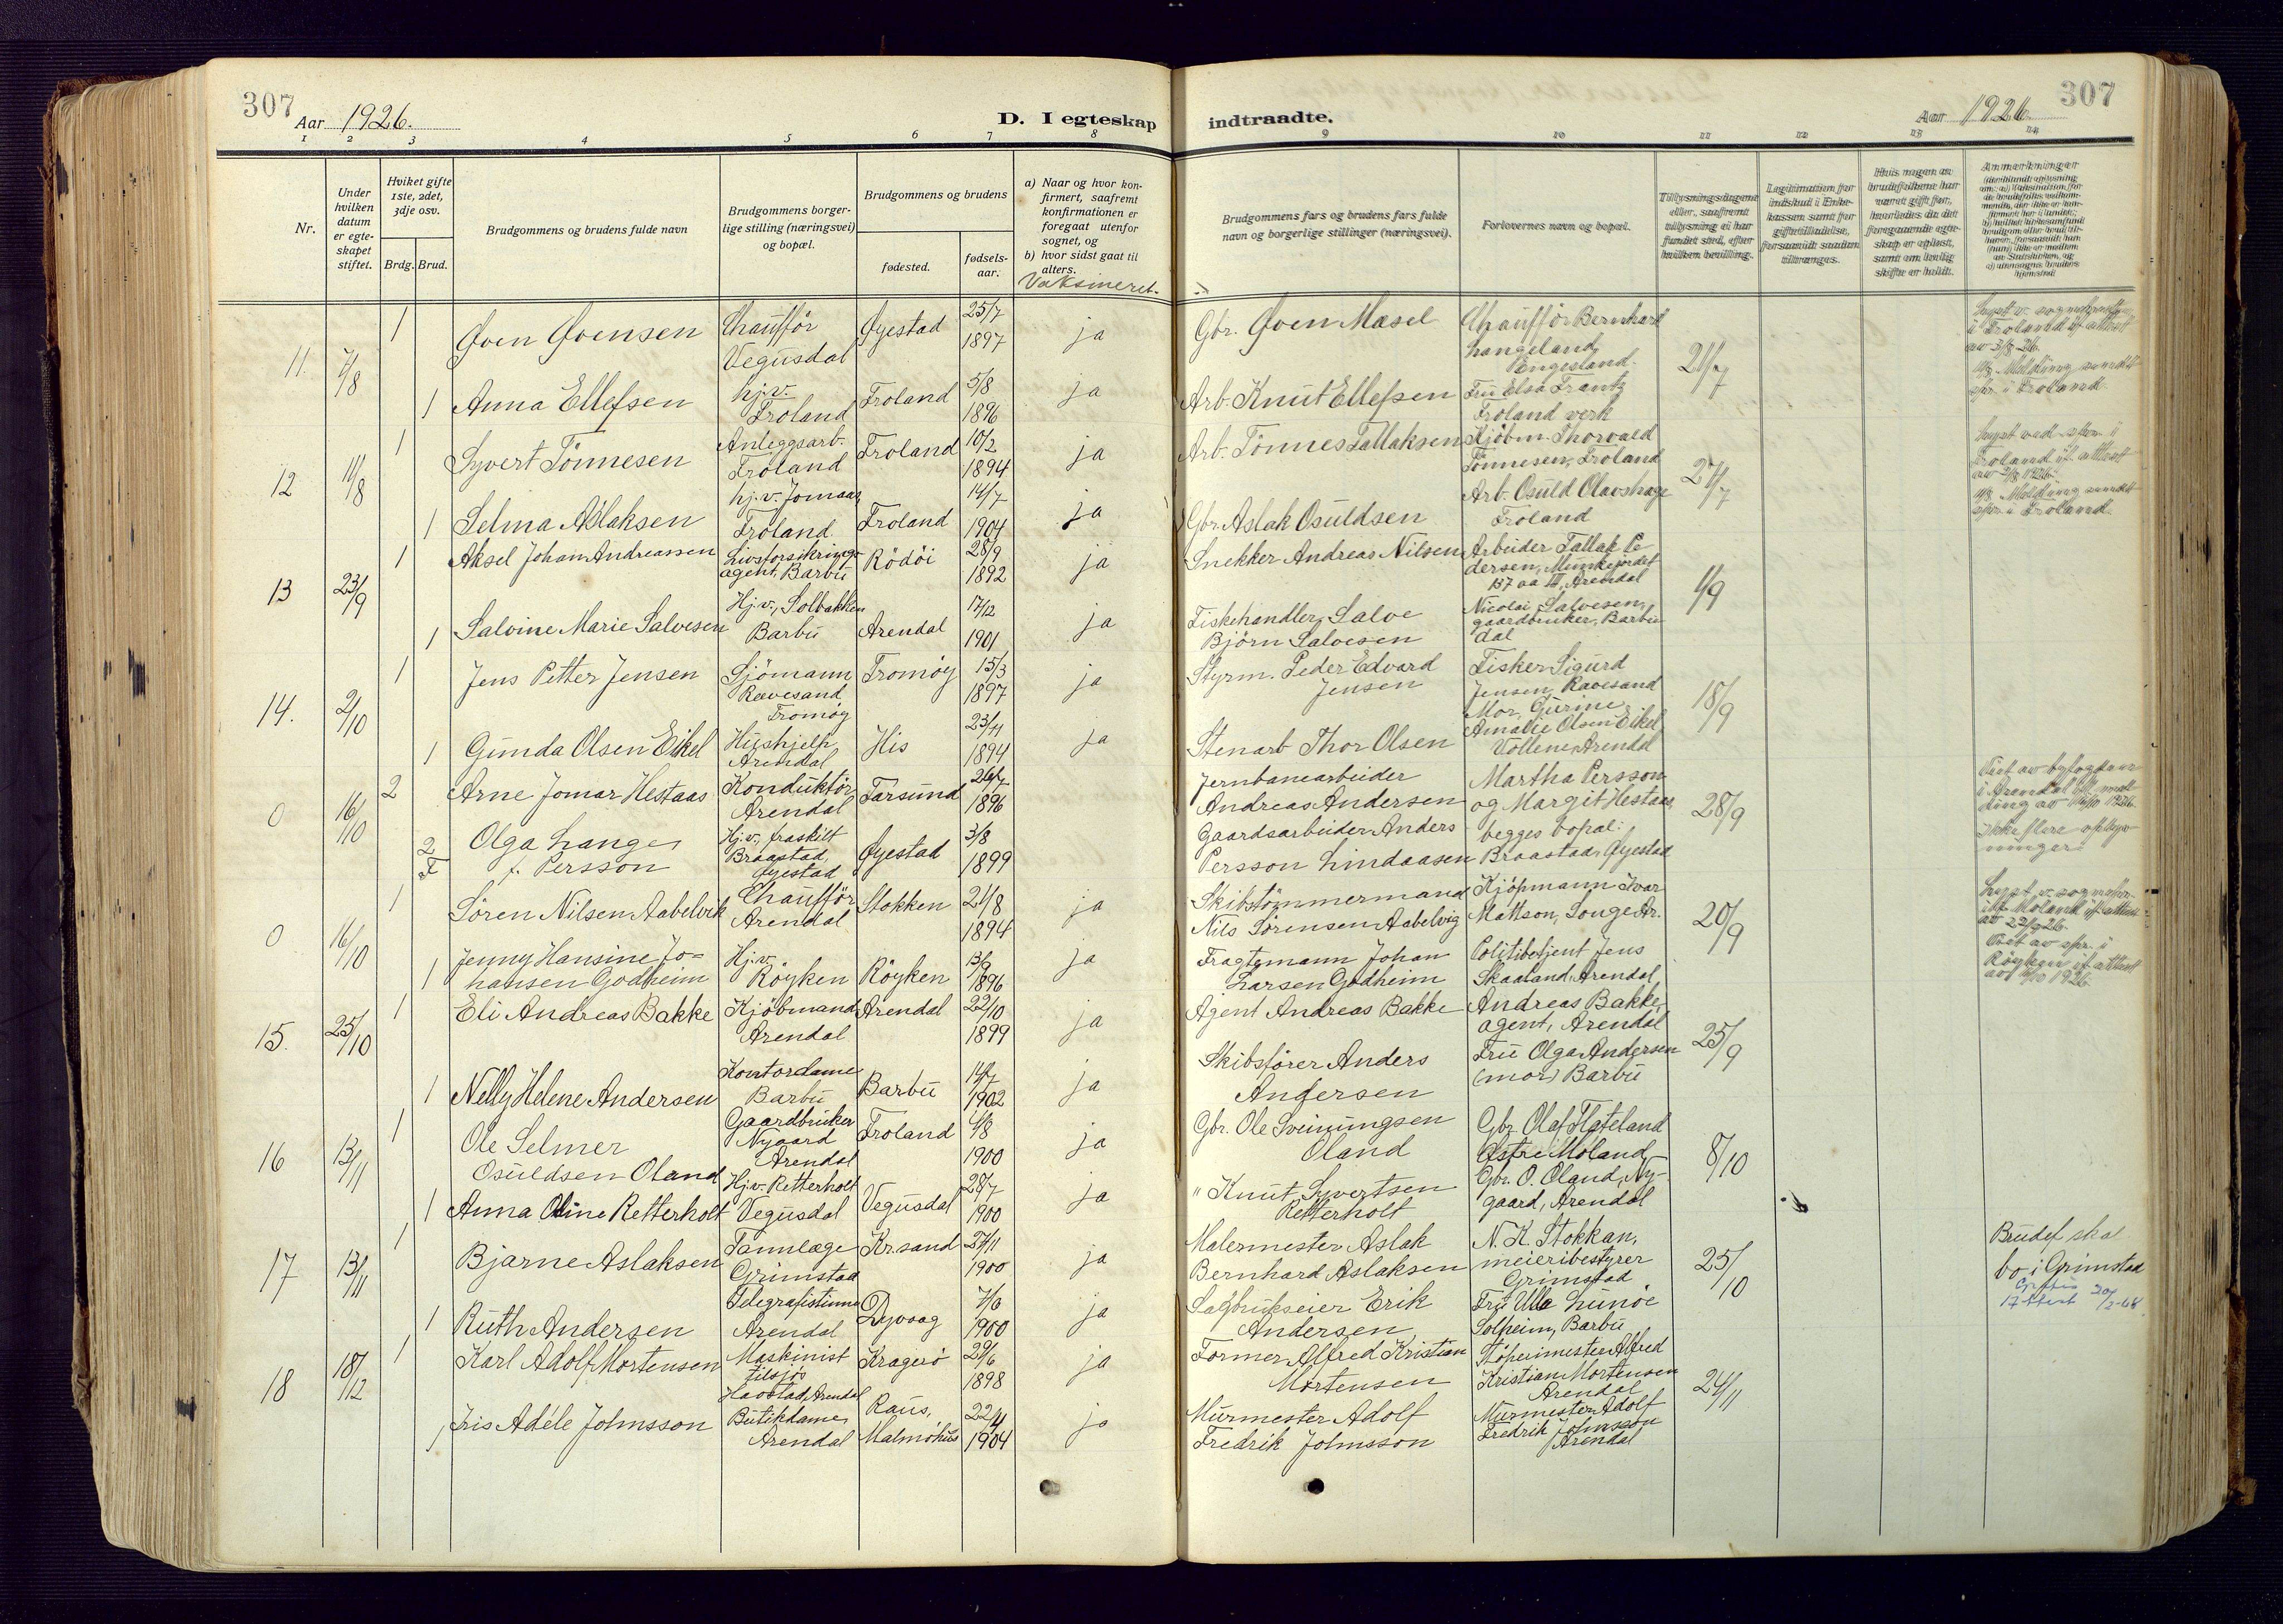 307
Aar 1926.
D. I egteskap
1 2 3 4 5 6 7 8
Nr.
Under hvilken datum er egteskapet stiftet.
Hvilket gifte 1ste, 2det, 3dje osv.
Brdg. Brud.
Brudgommens og brudens fulde navn
Brudgommens borgerlige stilling (næringsvei) og bopæl.
Brudgommens og brudens
fødested.
fødselsaar.
a) Naar og hvor konfirmert, saafremt konfirmationen er foregaat utenfor sognet, og
b) hvor sidst gaat til alters.
Vaksineret.
11. 7/8
1 Øven Øvensen Chauffør Vegusdal Øyestad 25/7 1897 ja
1 Anna Ellefsen hj.v. Froland Froland 5/8 1896 ja
12 11/8
1 Syvert Tönnesen Anleggsarb. Froland Froland 10/2 1894 ja
1 Selma Aslaksen hj.v. Jomaas Froland Froland 14/7 1904 ja
13 23/9
1 Aksel Johan Andreassen Livsforsikrings agent, Barbu Rödöi 28/9 1892 ja
1 Salvine Marie Salvesen Hj.v., Solbakken Barbu Arendal 17/12 1901 ja
14. 2/10
1 Jens Petter Jensen Sjömann Ravesand Tromøy Tromøy 15/3 1897 ja
1 Gunda Olsen Eikel Hushjelp, Arendal His 23/11 1894 ja
0 16/10
2 Arne Jomar Hestaas Konduktör Arendal Farsund 26/7 1896
2 F Olga Lange, f. Persson Hj.v., fraskilt Braastad, Øyestad Øyestad 3/8 1899
0 16/10
1 Sören Nilsen Aabelvik Chauffør Arendal Stokken 21/8 1894 ja
1 Jenny Hansine Jo-
hansen Godheim Hj.v. Röyken Röyken 13/9 1896 ja
15. 25/10
1 Eli Andreas Bakke Kjöbmand Arendal Arendal 22/10 1899 ja
1 Nelly Helene Andersen Kontordame Barbu Barbu 14/7 1902 ja
16 13/11
1 Ole Selmer
Osuldsen Oland Gaardbruker Nygaard Arendal Froland 4/8 1900 ja
1 Anna Oline Retterholt Hj.v. Retterholt Vegusdal Vegusdal 28/7 1900 ja
17 13/11
1 Bjarne Aslaksen Tannlæge Grimstad Kr.sand 27/11 1900 ja
1 Ruth Andersen Telegrafistinne Arendal Dyvaag 7/6 1900 ja
18 18/12
1 Karl Adolf Mortensen Maskinist tilsjös Havstad, Arendal Kragerö 29/6 1898 ja
1 Iris Adéle Johnsson Butikdame, Arendal Raus, Malmöhus 22/4 1904 ja
indtraadte.
Aar 1926.
307
9 10 11 12 13 14
Brudgommens fars og brudens fars fulde navn og borgerlige stillinger (næringsvei).
Forlovernes navn og bopæl.
Tillysningsdagene eller, saafremt tillysning ei har fundet sted, efter hvilken bevilling.
Legitimation for indskud i Enkekassen samt for giftetilladelse, forsaavidt saadan tiltrænges.
Hvis nogen av brudefolkene har været gift før, hvorledes da det foregaaende egteskap er opløst, samt om lovlig skifte er holdt.
Anmerkninger
Gbr. Øven Mæsel Chauffør Bernhard Langeland, Engesland. 21/7
Arb. Knut Ellefsen Fru Elsa Frantz Froland verk
Lyst v. sogneprsten i Froland if. attest av 3/8 26.
Melding sendt spr. i Froland.
Arb. Tönnes Tallaksen Kjöbm. Thorvald Tönnesen, Froland 27/7
Gbr. Aslak Osuldsen Arb. Osuld Olavshage Froland
Lyst ved spr. i Froland if. attest
Melding sendt spr. i Froland.
Snekker Andreas Nilsen Arbeider Tallak Pe-
dersen, Munkejordet 137 aa III, Arendal 1/9
Fiskehandler Salve
Björn Salvesen Nicolai Salvesen, gaardbruker, Barbu
dal
Styrm. Peder Edvard
Jensen Fisker Sigurd Jensen, Ravesand 18/9
Stenarb Thor Olsen Mor, Gurine Amalie Olsen Eikel Vollene, Arendal
Jernbanearbeider
Andreas Andersen Martha Persson
og Margit Hestaas, 28/9
Gaardsarbeider Anders
Persson Lindaasen begges bopæl:
Braastad, Øyestad
Viet av byfogden i Arendal if. melding av 16/10 1926.
Ikke flere oplysninger
Skibstömmermand
Nils Sörensen Aabelvig Kjöpmann Ivar
Mattson, Songe Ar. 20/9
Fragtemann Johan
Larsen Godheim Politibetjent Jens
Skaaland, Arendal
Viet av spr. i Röyken if. attest av 16/10 1926.
Agent Andreas Bakke Andreas Bakke, agent, Arendal 25/9
Skibsförer Anders
Andersen Fru Olga Andersen
(mor) Barbu
Gbr. Ole Sveinungsen
Oland Gbr. Olaf Flateland
Østre Moland 8/10
" Knut Syvertsen
Retterholt Gbr. O. Oland, Ny-
gaard, Arendal
Malermester Aslak
Bernhard Aslaksen N. K. Stokkan,
meieribestyrer
Grimstad 25/10
Sagbrukseier Erik
Andersen Fru Ulla Lunöe
Solheim, Barbu
Brudef. skal
bo i Grimstad
Former Alfred Kristian
Mortensen Stöperimester Alfred
Kristian Mortensen
Arendal 24/11
Murmester Adolf
Fredrik Johnsson Murmester Adolf
Fredrik Johnsson
Arendal